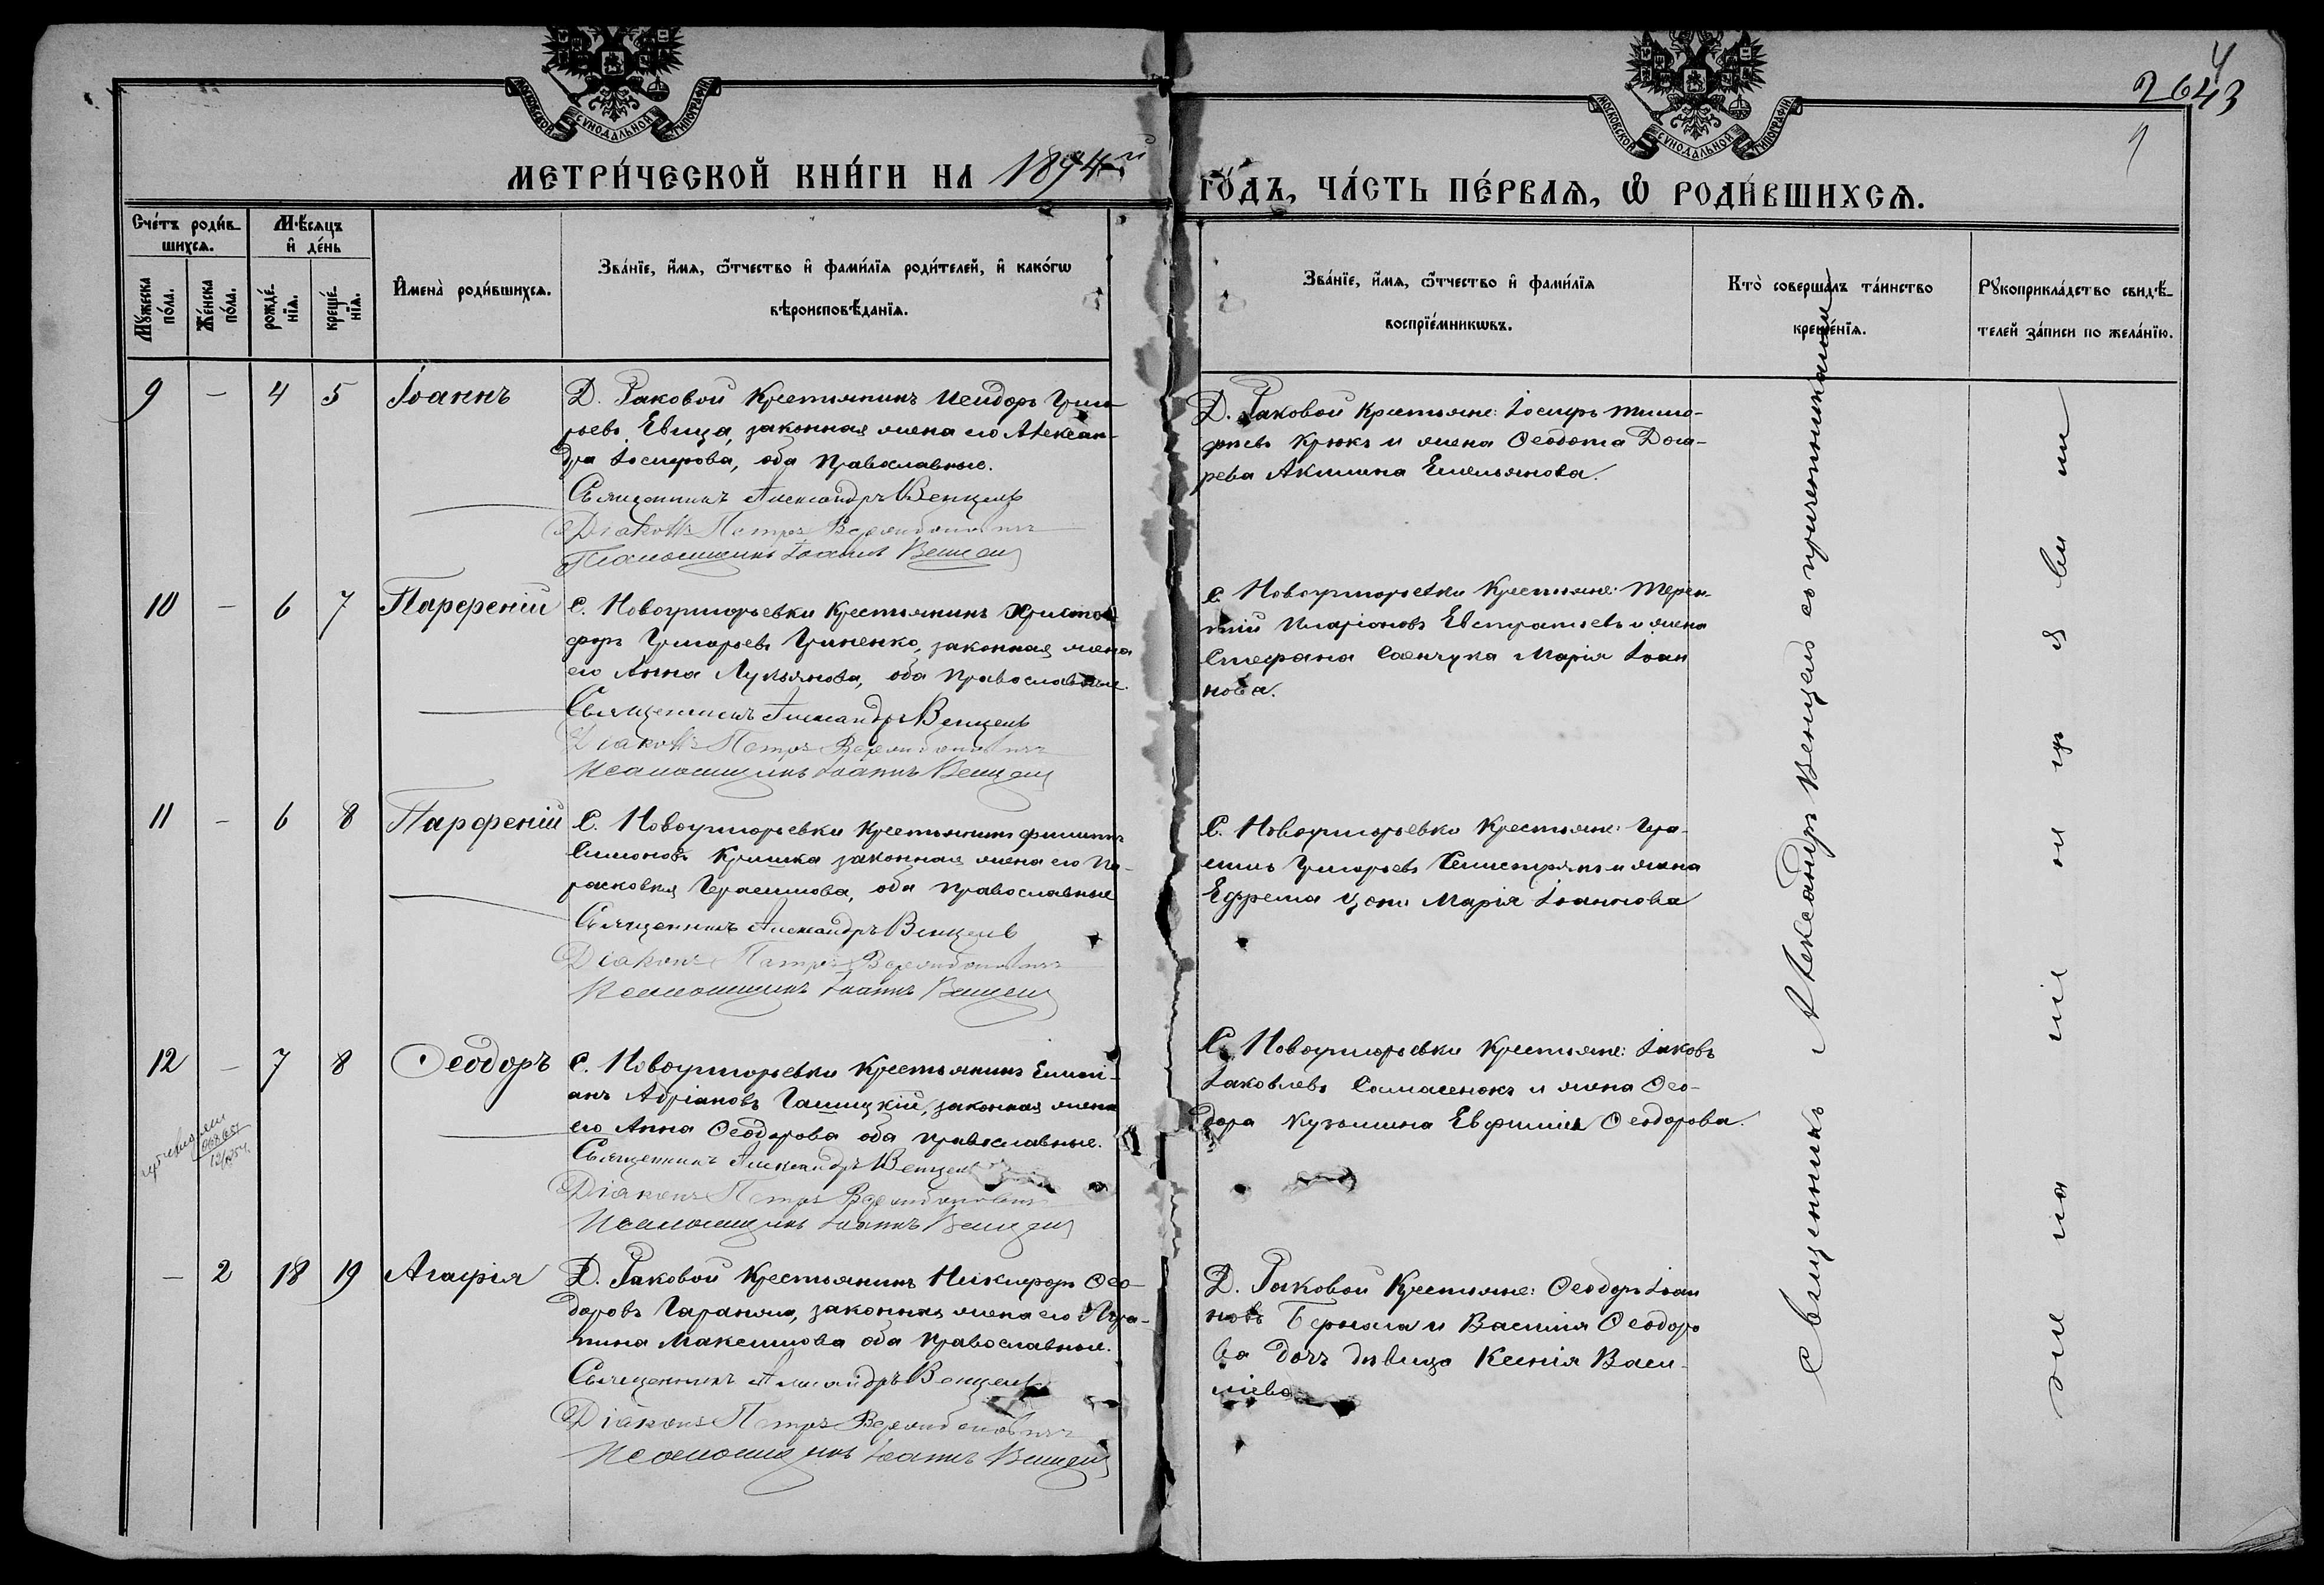 МОСКОВСКОЙ СѴНОДАЛЬНОЙ ТИПОГРАФІИ
МОСКОВСКОЙ СѴНОДАЛЬНОЙ ТИПОГРАФІИ
4
2643
МЕТРИ́ЧЕСКОЙ КНИ́ГИ НА 1894й ГО́ДЪ, ЧА́СТЬ ПЕ́РВАѦ, Ѡ҆ РОДИ́ВШИХСѦ.
Сче́тъ роди́в-
шихсѧ.
Мѣ́сѧцъ
и҆ де́нь
Мꙋ́жеска
по́ла.
Же́нска
по́ла.
рожде́-
нїѧ.
креще́-
нїѧ.
И҆мена̀ роди́вшихсѧ.
Зва́нїе, и҆́мѧ, ѻ҆́тчество и҆ фами́лїѧ роди́телей, и҆ како́гѡ
вѣроисповѣ́данїѧ.
Зва́нїе, и҆́мѧ, ѻ҆́тчество и҆ фами́лїѧ
воспрїе́мникѡвъ.
Кто̀ соверша́лъ та́инство
креще́нїѧ.
Рꙋкоприкла́дство свидѣ́-
телей за́писи по жела́нїю.
9 – 4 5 Іоаннъ
Д. Раковой Крестьянинъ Исидоръ Григо-
рьевъ Евица, законная жена его Алексан-
дра Іосифова, оба православные.
Священникъ Александръ Венцель
Діаконъ Петръ
Псаломщикъ Іоаннъ Венцель
Д. Раковой Крестьяне: Іосифъ Тимо-
феевъ Крюкъ и жена Ѳеодота
Акилина Емельянова.
10 – 6 7 Парфеній
С. Новогригорьевки Крестьянинъ Христо-
форъ Григорьевъ Гриненко, законная жена
его Анна Лукьянова, оба православные.
Священникъ Александръ Венцель
Діаконъ Петръ
Псаломщикъ Іоаннъ Венцель
С. Новогригорьевки Крестьяне: Терен-
тій Иларіоновъ Евстратьевъ и жена
Стефана Савчука Марія Іоан
нова.
11 – 6 8 Парфеній
С. Новогригорьевки Крестьянинъ Филиппъ
Симоновъ Кришка законная жена его Па-
расковія Герасимова, оба православные
Священникъ Александръ Венцель
Діаконъ Петръ
Псаломщикъ Іоаннъ Венцель
С. Новогригорьевки Крестьяне: Гера-
симъ Григорьевъ и жена
Ефрема Марія Іоаннова
12 – 7 8 Ѳеодоръ
С. Новогригорьевки Крестьянинъ Емилі-
анъ Адріановъ Галицкій, законная жена
его Анна Ѳеодорова оба православные.
Священникъ Александръ Венцель
Діаконъ Петръ
Псаломщикъ Іоаннъ Венцель
С. Новогригорьевки Крестьяне: Іаковъ
Іаковлевъ и жена Ѳео-
дора Кузьмина Евфимія Ѳеодорова.
– 2 18 19 Агафія
Д. Раковой Крестьянинъ Никифоръ Ѳео-
доровъ Гаранжа, законная жена его Ага-
Максимова оба православные.
Священникъ Александръ Венцель
Діаконъ Петръ
Псаломщикъ Іоаннъ Венцель
Д. Раковой Крестьяне: Ѳеодоръ Іоан
новъ и Василія Ѳеодоро
ва дочь дѣвица Ксенія Васи-
ліева
Священникъ Александръ Венцель со причетниками